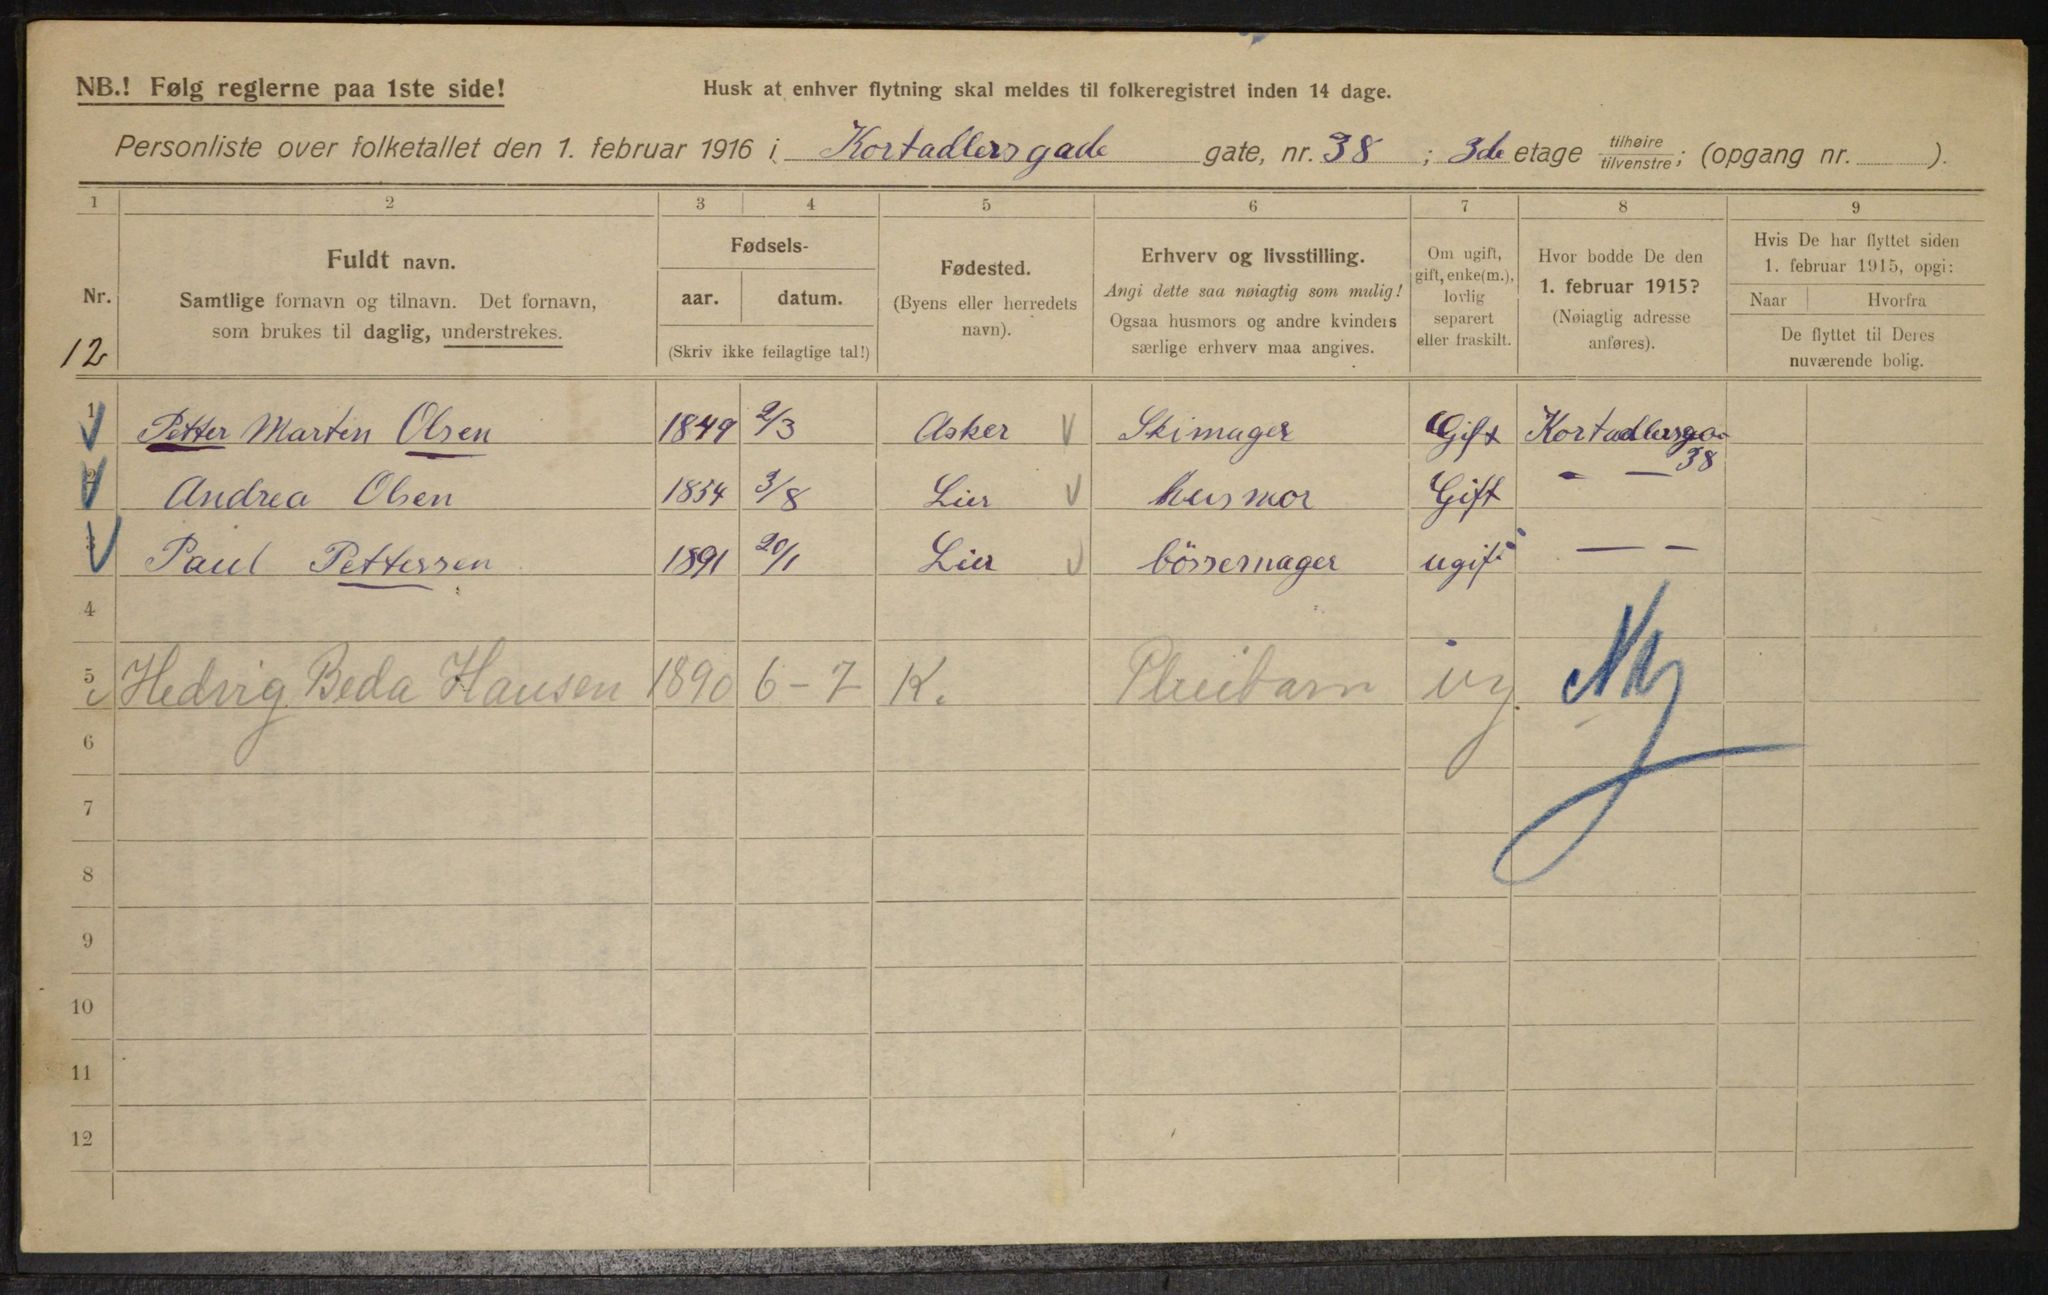 NB.! Følg reglerne paa 1ste side!
Husk at enhver flytning skal meldes til folkeregistret inden 14 dage.
Personliste over folketallet den 1. februar 1916 i Kortadlersgade gate, nr. 38 ; 3de etage tilhøire tilvenstre; (opgang nr. ).
1 2 3 4 5 6 7 8 9
Nr.
12
Fuldt navn.
Samtlige fornavn og tilnavn. Det fornavn,
som brukes til daglig, understrekes.
Fødsels-
aar. datum.
(Skriv ikke feilagtige tal!)
Fødested.
(Byens eller herredets
navn).
Erhverv og livsstilling.
Angi dette saa nøiagtig som mulig!
Ogsaa husmors og andre kvinders
særlige erhverv maa angives.
Om ugift,
gift, enke(m.),
lovlig
separert
eller fraskilt.
Hvor bodde De den
1. februar 1915?
(Nøiagtig adresse
anføres).
Hvis De har flyttet siden
1. februar 1915, opgi:
Naar Hvorfra
De flyttet til Deres
nuværende bolig.
1 Petter Marten Olsen 1849 2/3 Asker Skimager Gift Kortadlersga
38
2 Andrea Olsen 1854 3/8 Lier husmor Gift - —
3 Paul Pettersen 1891 20/1 Lier börsemager ugift — -
4
5 Hedvig Beda Hansen 1890 6-7 K. Pleibarn ug. Ny
6
7
8
9
10
11
12